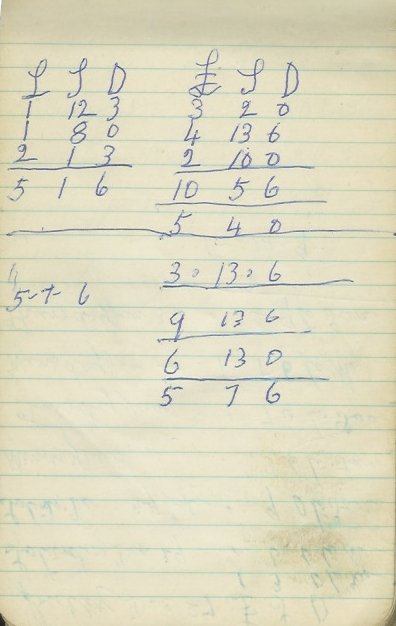 £ S D
1 12 3
1 8 0
2 1 3
5 1 6
£ S D
3 2 0
4 13 6
2 10 0
10 5 6
5 4 0
3 . 13 . 6
9 13 6
6 13 0
5 7 6
5-7- 6